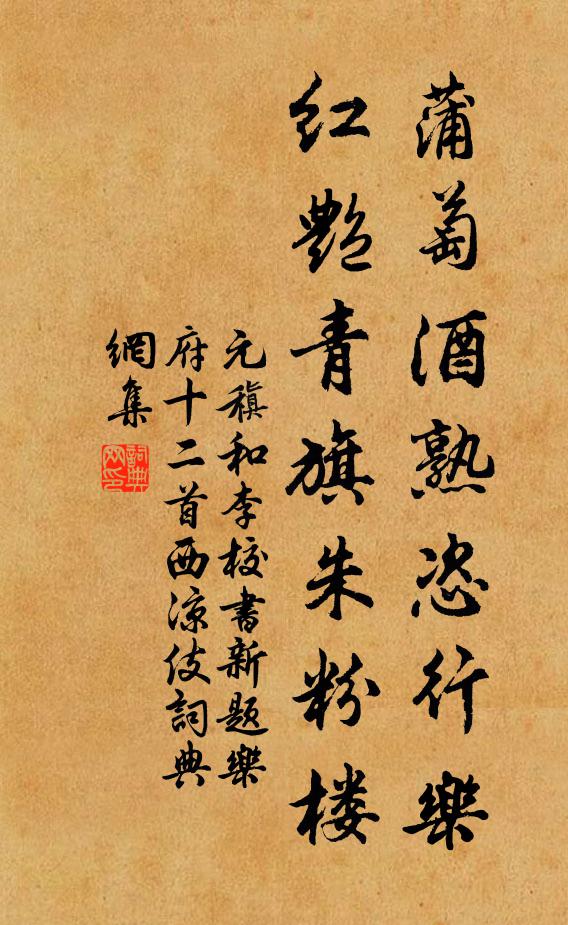 蒲萄酒熟恣行樂
红艷青旗朱粉楼
元稹和李校書新题樂
府十二首西涼伎詞典
網集
詞典
网印